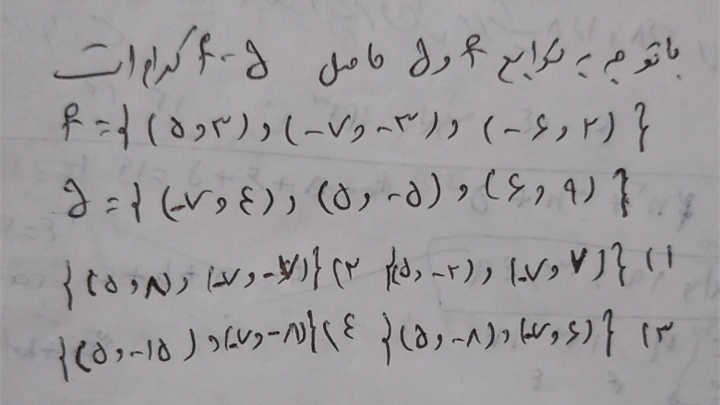 با توجه به توابع f و g حاصل f-g کدام است
f = { (۵,۳), (-۷,-۳), (-۶,۲) }
g = { (-۷,۴), (۵,-۵), (۶,۹) }
۱) {(۵,-۲), (-۷,۷)} ۲) {(۵,۸), (-۷,-۷)}
۳) {(۵,-۸), (-۷,۶)} ۴) {(۵,-۱۵), (-۷,-۸)}